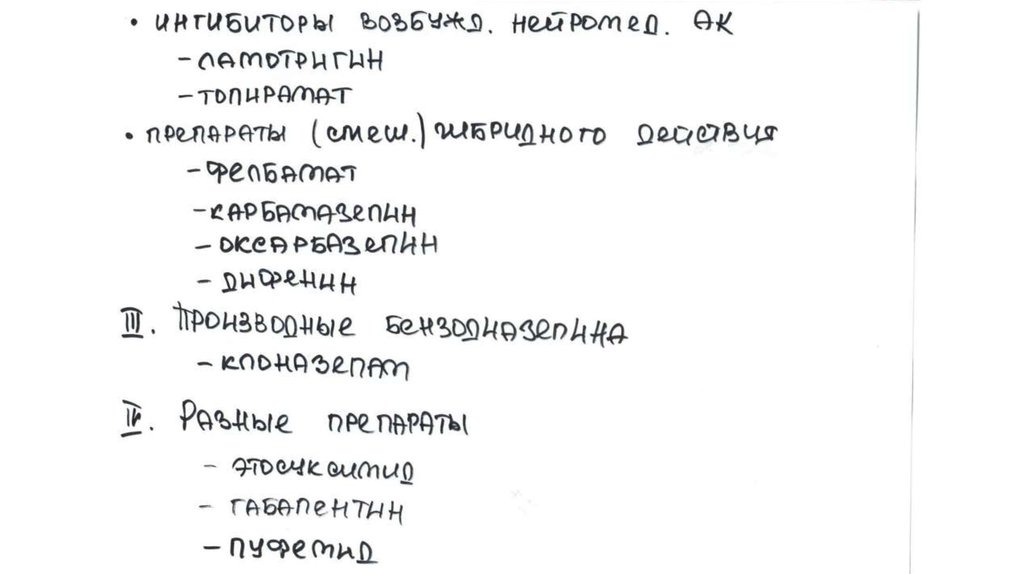 • ИНГИБИТОРЫ ВОЗБУЖД. НЕЙРОМЕД. АК
- ЛАМОТРИГИН
- ТОПИРАМАТ
• ПРЕПАРАТЫ (СМЕШ.) ГИБРИДНОГО ДЕЙСТВИЯ
- ФЕЛБАМАТ
- КАРБАМАЗЕПИН
- ОКСАРБАЗЕПИН
- ДИФЕНИН
III. ПРОИЗВОДНЫЕ БЕНЗОДИАЗЕПИНА
- КЛОНАЗЕПАМ
IV. РАЗНЫЕ ПРЕПАРАТЫ
- ЭТОСУКСИМИД
- ГАБАПЕНТИН
- ПУФЕМИД